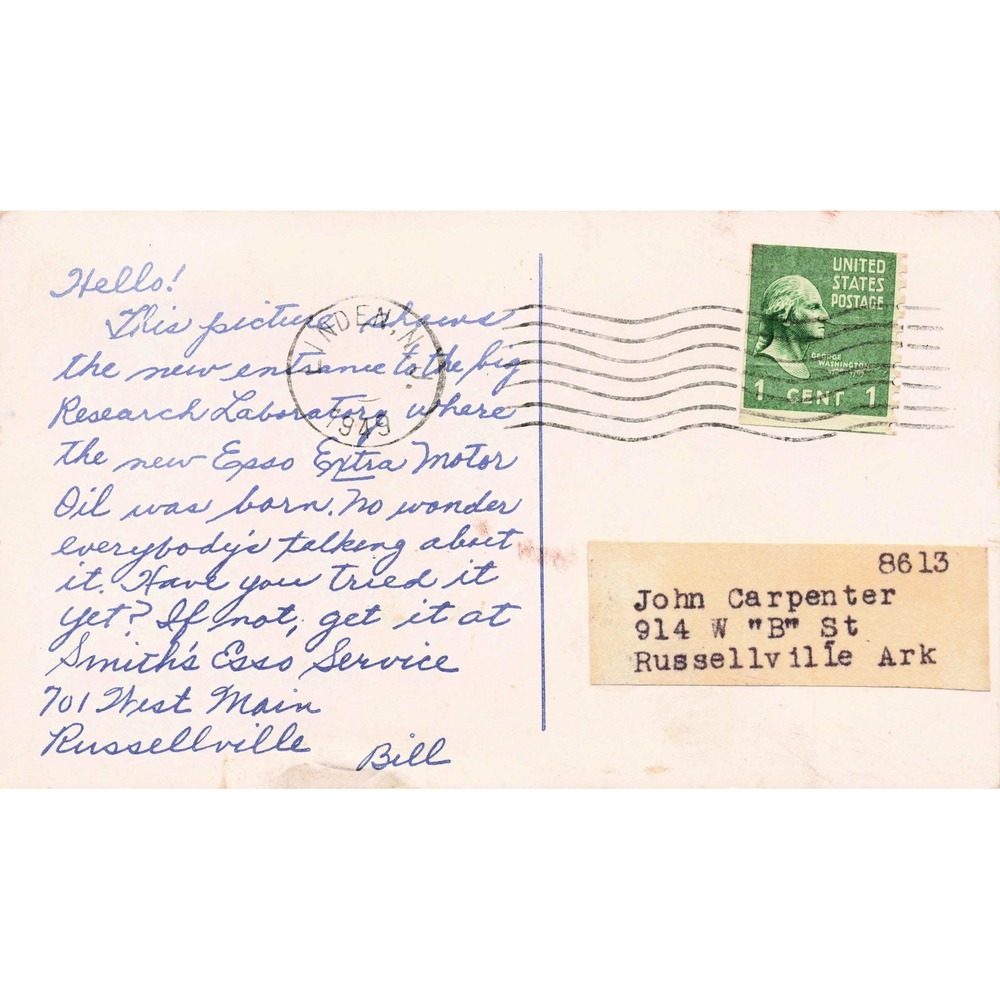 Hello!
This picture shows
the new entrance to the big
Research Laboratory where
the new Esso Extra Motor
Oil was born. No wonder
everybody's talking about
it. Have you tried it
yet? If not, get it at
Smith's Esso Service
701 West Main
Russellville
Bill
LINDEN, N.J.
1949
UNITED
STATES
POSTAGE
GEORGE
WASHINGTON
1 CENT 1
8613
John Carpenter
914 W "B" St
Russellville Ark